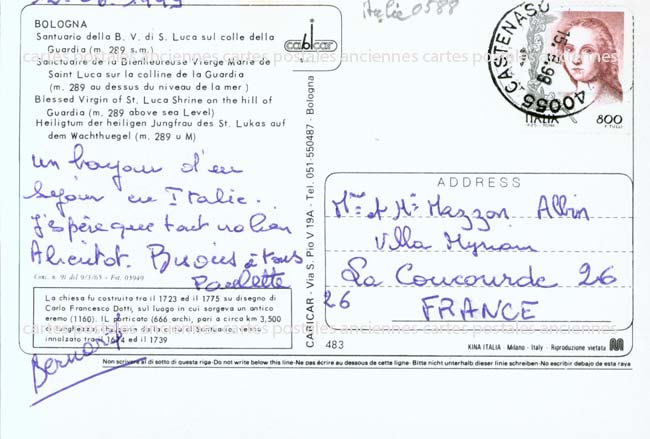 12.06.1999
italie 0588
BOLOGNA
Santuario della B. V. di S. Luca sul colle della
Guardia (m. 289 s.m.)
cartes postales anciennes cartes postales anciennes
Sanctuaire de la Bienheureuse Vierge Marie de
Saint Luca sur la colline de la Guardia
(m. 289 au dessus du niveau de la mer)
Blessed Virgin of St. Luca Shrine on the hill of
Guardia (m. 289 above sea Level)
Heiligtum der heiligen Jungfrau des St. Lukas auf
dem Wachthuegel (m. 289 u M)
cabicar
40055 CASTENASO
ITALIA 800
un bonjour d'un
séjour en Italie.
J'espère que tout va bien
A bientot. Bisous à tous
Paulette
Bernard
La chiesa fu costruita tra il 1723 ed il 1775 su disegno di
Carlo Francesco Dotti, sul luogo in cui sorgeva un antico
eremo (1160). IL porticato (666 archi, pari a circa km 3,500
di lunghezza) che dalla città porta al Santuario, venne
innalzato tra il 1674 ed il 1739
cartes postales anciennes cartes postales anciennes
CABICAR - Via S. Pio V 19A - Tel. 051-550487 - Bologna
ADDRESS
Mme et Mr Mazzon Albin
Villa
La Coucourde 26
26 FRANCE
483
KINA ITALIA - Milano - Italy - Riproduzione vietata
Non scrivere al di sotto di questa riga-Do not write below this line-Ne pas écrire au dessous de cette ligne- Bitte nicht unterhalb dieser linie schreiben-No escribir debajo de esta raya